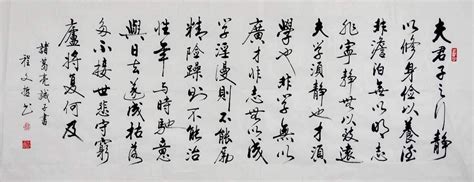 夫君子之行静
以修身儉以養德
非澹泊無以明志
非寧静無以致遠
夫學須静也才須
學也非學無以
廣才非志無以成
學淫慢則不能勵
精險躁則不能治
性年與時馳意
與日去遂成枯落
多不接世悲守窮
廬將復何及
諸葛亮誡子書